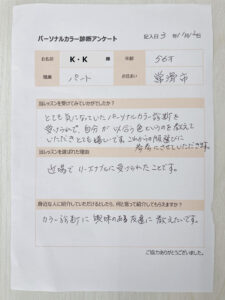 パーソナルカラー診断アンケート
記入日
お名前 K・K 様 年齢 56才
職業 パート お住まい 常滑市
当レッスンを受けてみていかがでしたか？
とても気になっていたパーソナルカラー診断を
受けられて、自分が似合う色というのを教えて
いただきとても嬉しいです。これからの服選びに
参考にさせていただきます。
当レッスンを選ばれた理由
近場でリーズナブルに受けられたことです。
身近な人に紹介していただけるとしたら、何と言って紹介してもらえますか？
カラー診断に興味のある友達に教えたいです。
ご協力ありがとうございました。